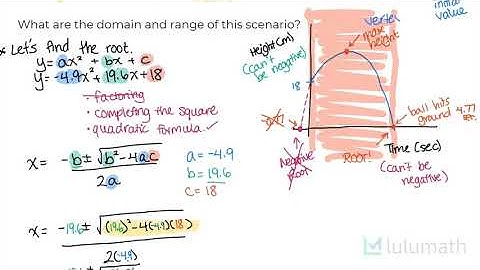 What are the domain and range of this scenario?
Let's find the root.
y = ax² + bx + c
y = -4.9x² + 19.6x + 18
factoring
• completing the square
• quadratic formula ✓
x = -b ± √b² - 4ac
2a
a = -4.9
b = 19.6
c = 18
x = -19.6 ± √(19.6)² - 4(-4.9)(18)
2(-4.9)
initial
value
vertex
max
height
Height(m)
(can't
be negative)
18
ball hits
ground 4.77
sec.
Negative
Root
Root!
Time (sec)
(can't be
negative)
lulumath